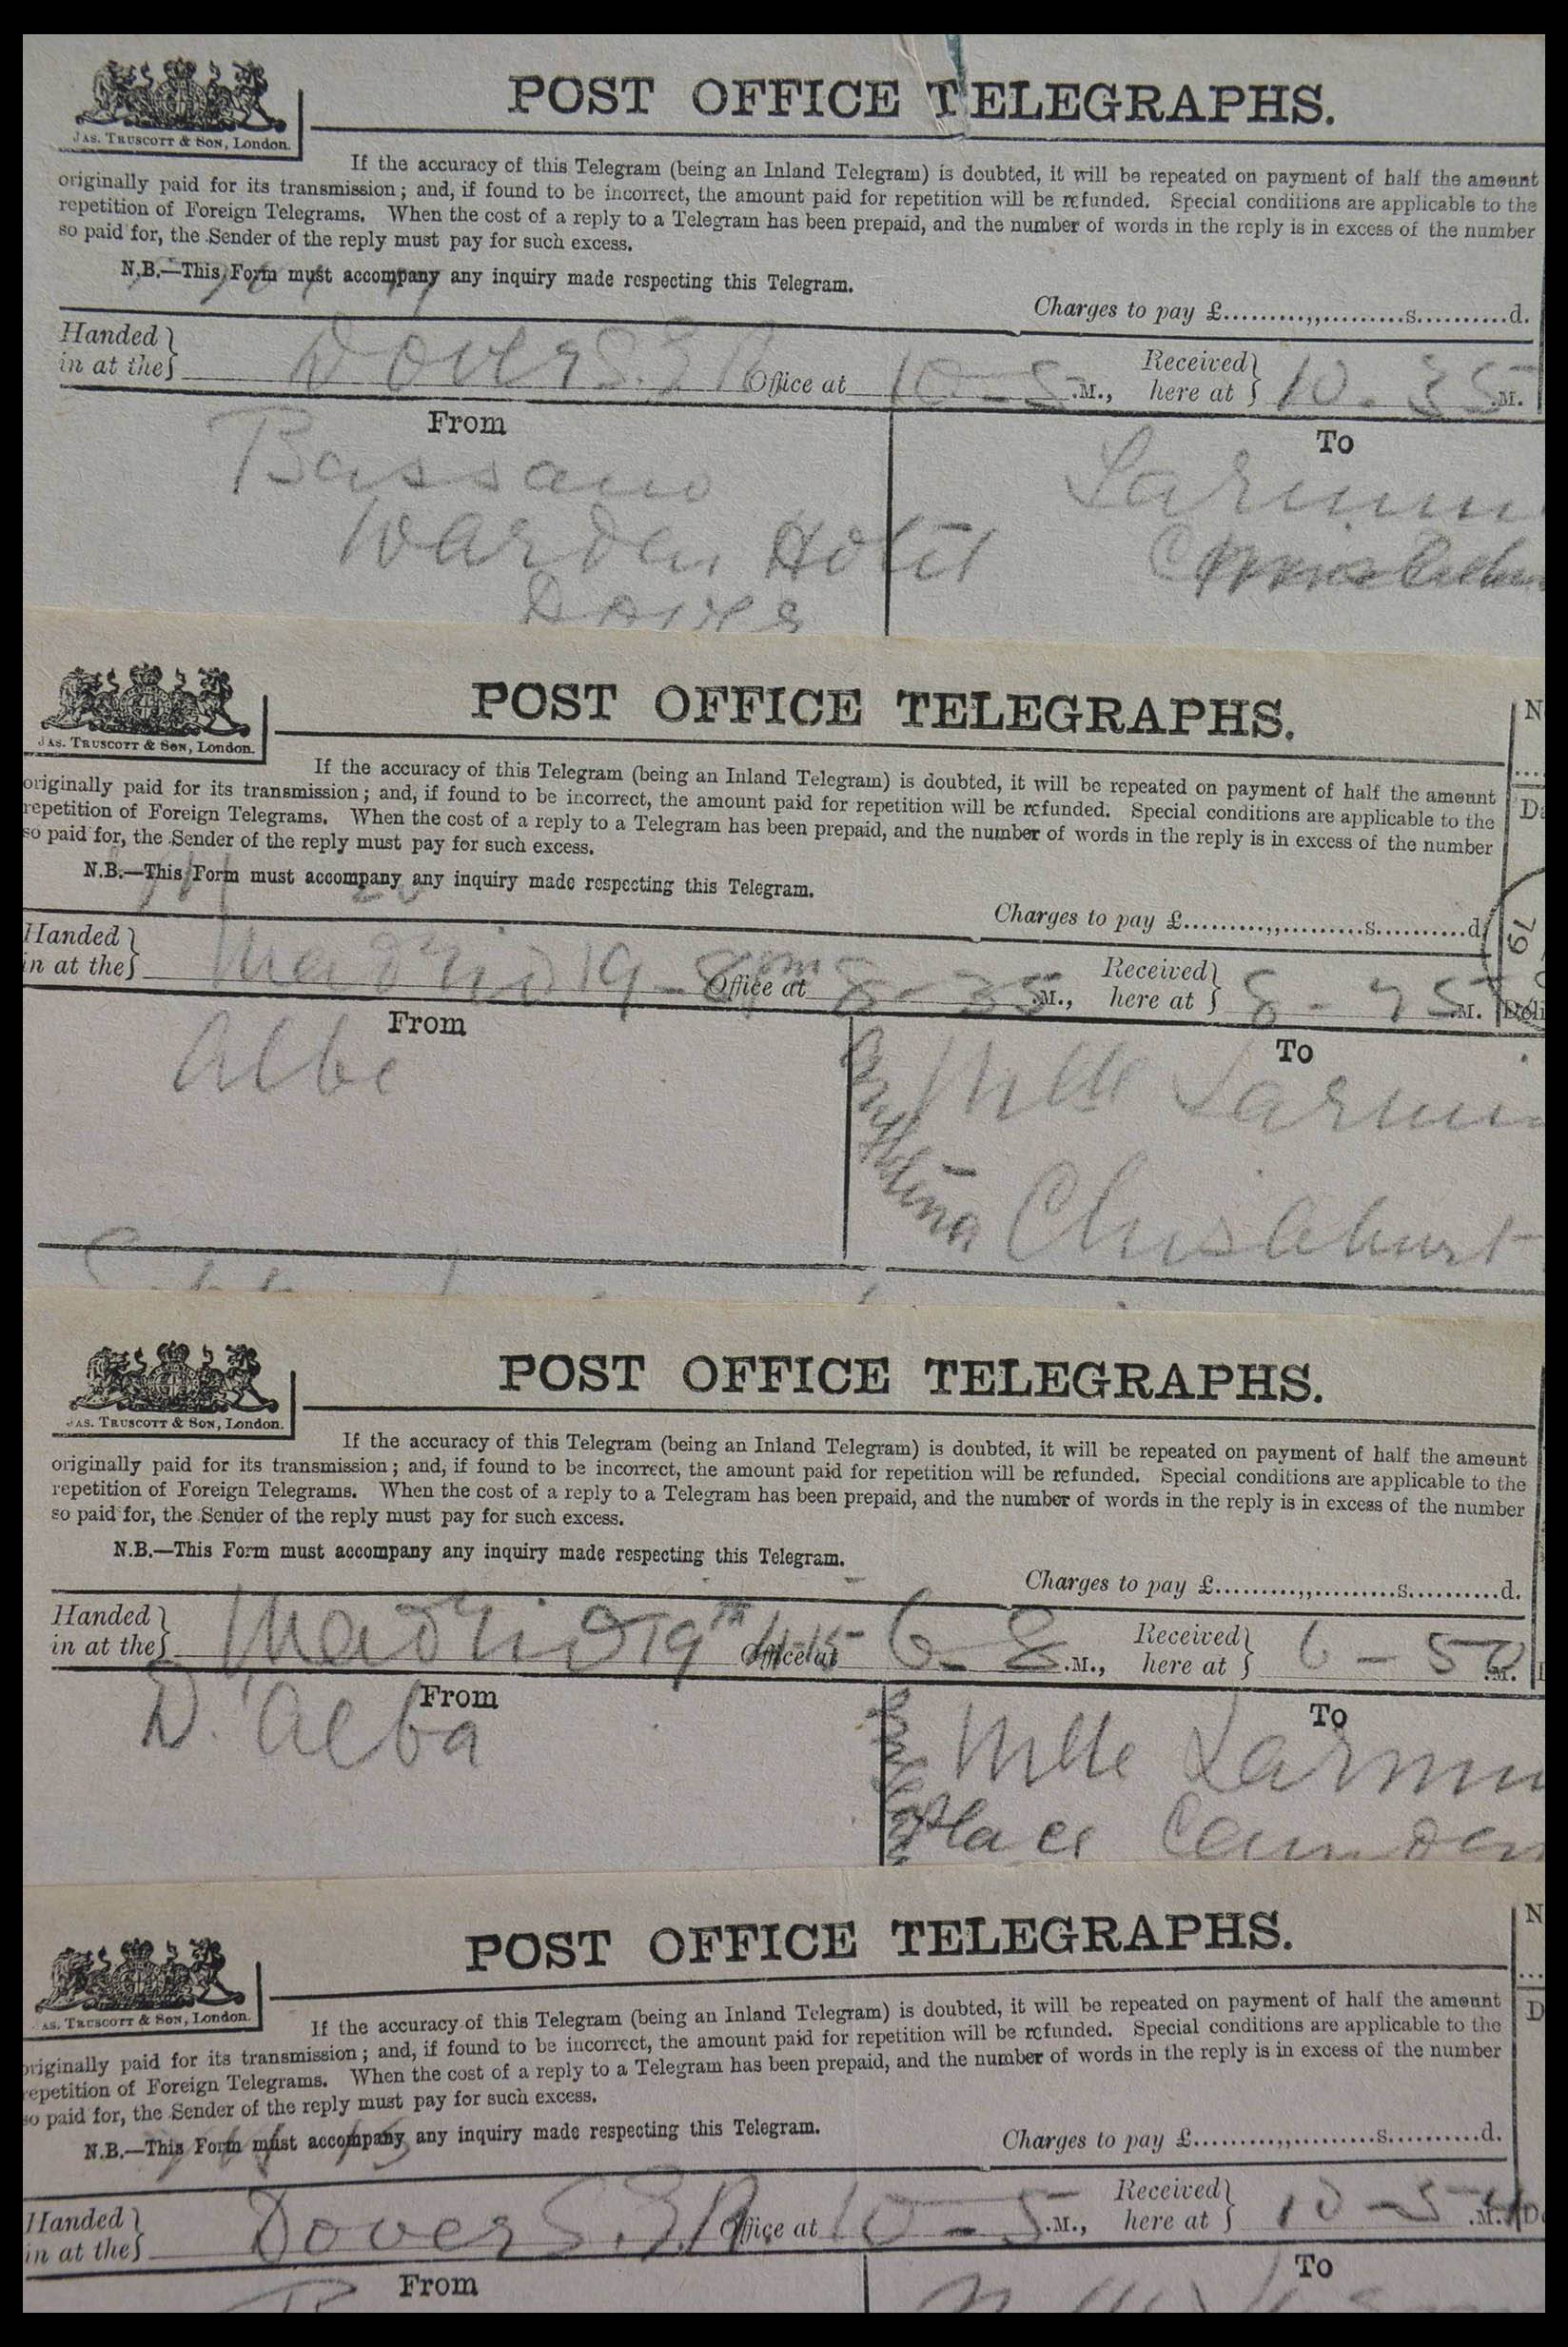 POST OFFICE TELEGRAPHS.
JAS. TRUSCOTT & SON, London.
If the accuracy of this Telegram (being an Inland Telegram) is doubted, it will be repeated on payment of half the amount
originally paid for its transmission; and, if found to be incorrect, the amount paid for repetition will be refunded. Special conditions are applicable to the
repetition of Foreign Telegrams. When the cost of a reply to a Telegram has been prepaid, and the number of words in the reply is in excess of the number
so paid for, the Sender of the reply must pay for such excess.
N.B.—This Form must accompany any inquiry made respecting this Telegram.
Charges to pay £..........,,..........s..........d.
Handed in at the} Dover S.E.R. Office at 10-5 .M., Received here at } 10.35 .M.
From To
Bassano Larmin
Warden Hotel
Dover
POST OFFICE TELEGRAPHS.
JAS. TRUSCOTT & SON, London.
N
If the accuracy of this Telegram (being an Inland Telegram) is doubted, it will be repeated on payment of half the amount
originally paid for its transmission; and, if found to be incorrect, the amount paid for repetition will be refunded. Special conditions are applicable to the
repetition of Foreign Telegrams. When the cost of a reply to a Telegram has been prepaid, and the number of words in the reply is in excess of the number
so paid for, the Sender of the reply must pay for such excess.
N.B.—This Form must accompany any inquiry made respecting this Telegram.
Charges to pay £..........,,..........s..........d.
79
Handed in at the} Madrid 19 - 8 pm Office at 8-35 .M., Received here at } 8-45 .M.
From To
Albe Mlle Larmin
Chislehurst
POST OFFICE TELEGRAPHS.
JAS. TRUSCOTT & SON, London.
If the accuracy of this Telegram (being an Inland Telegram) is doubted, it will be repeated on payment of half the amount
originally paid for its transmission; and, if found to be incorrect, the amount paid for repetition will be refunded. Special conditions are applicable to the
repetition of Foreign Telegrams. When the cost of a reply to a Telegram has been prepaid, and the number of words in the reply is in excess of the number
so paid for, the Sender of the reply must pay for such excess.
N.B.—This Form must accompany any inquiry made respecting this Telegram.
Charges to pay £..........,,..........s..........d.
Handed in at the} Madrid 19th 4-15 Office at 6-8 .M., Received here at } 6-50 .M.
From To
D. Alba Mlle Larmin
Place Camden
POST OFFICE TELEGRAPHS.
JAS. TRUSCOTT & SON, London.
N
If the accuracy of this Telegram (being an Inland Telegram) is doubted, it will be repeated on payment of half the amount
originally paid for its transmission; and, if found to be incorrect, the amount paid for repetition will be refunded. Special conditions are applicable to the
repetition of Foreign Telegrams. When the cost of a reply to a Telegram has been prepaid, and the number of words in the reply is in excess of the number
so paid for, the Sender of the reply must pay for such excess.
N.B.—This Form must accompany any inquiry made respecting this Telegram.
Charges to pay £..........,,..........s..........d.
Handed in at the} Dover S.E.R. Office at 10-5 .M., Received here at } .M.
From To